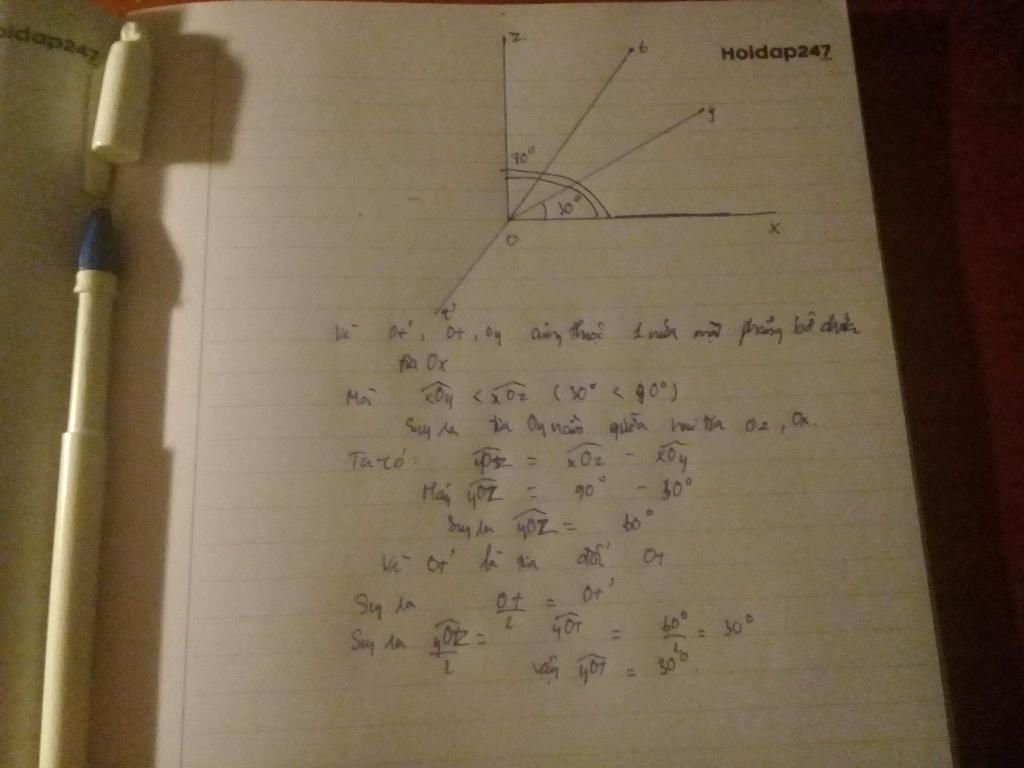 oidap247
Holdap247
z
t
y
90°
30°
O
x
t'
Vì Ot', Ot, Oy cùng thuộc 1 nửa mặt phẳng bờ chứa
tia Ox
Mà xOy < xOz (30° < 90°)
Suy ra tia Oy nằm giữa hai tia Oz, Ox.
Ta có: yOz = xOz - xOy
Hay yOz = 90° - 30°
Suy ra yOz = 60°
Vì Ot' là tia đối Ot
Suy ra Ot/2 = Ot'
Suy ra yOz/2 = yOt = 60°/2 = 30°
Vậy yOt = 30°